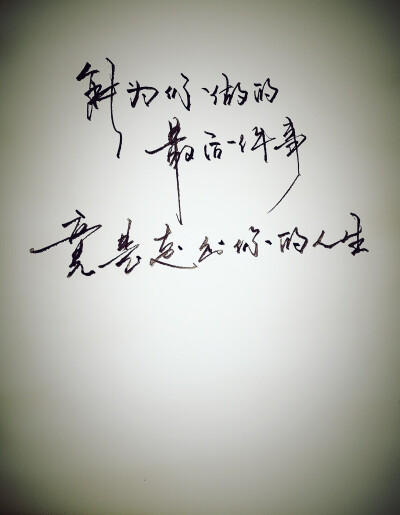 我为你做的
最后一件事
竟是走出你的人生